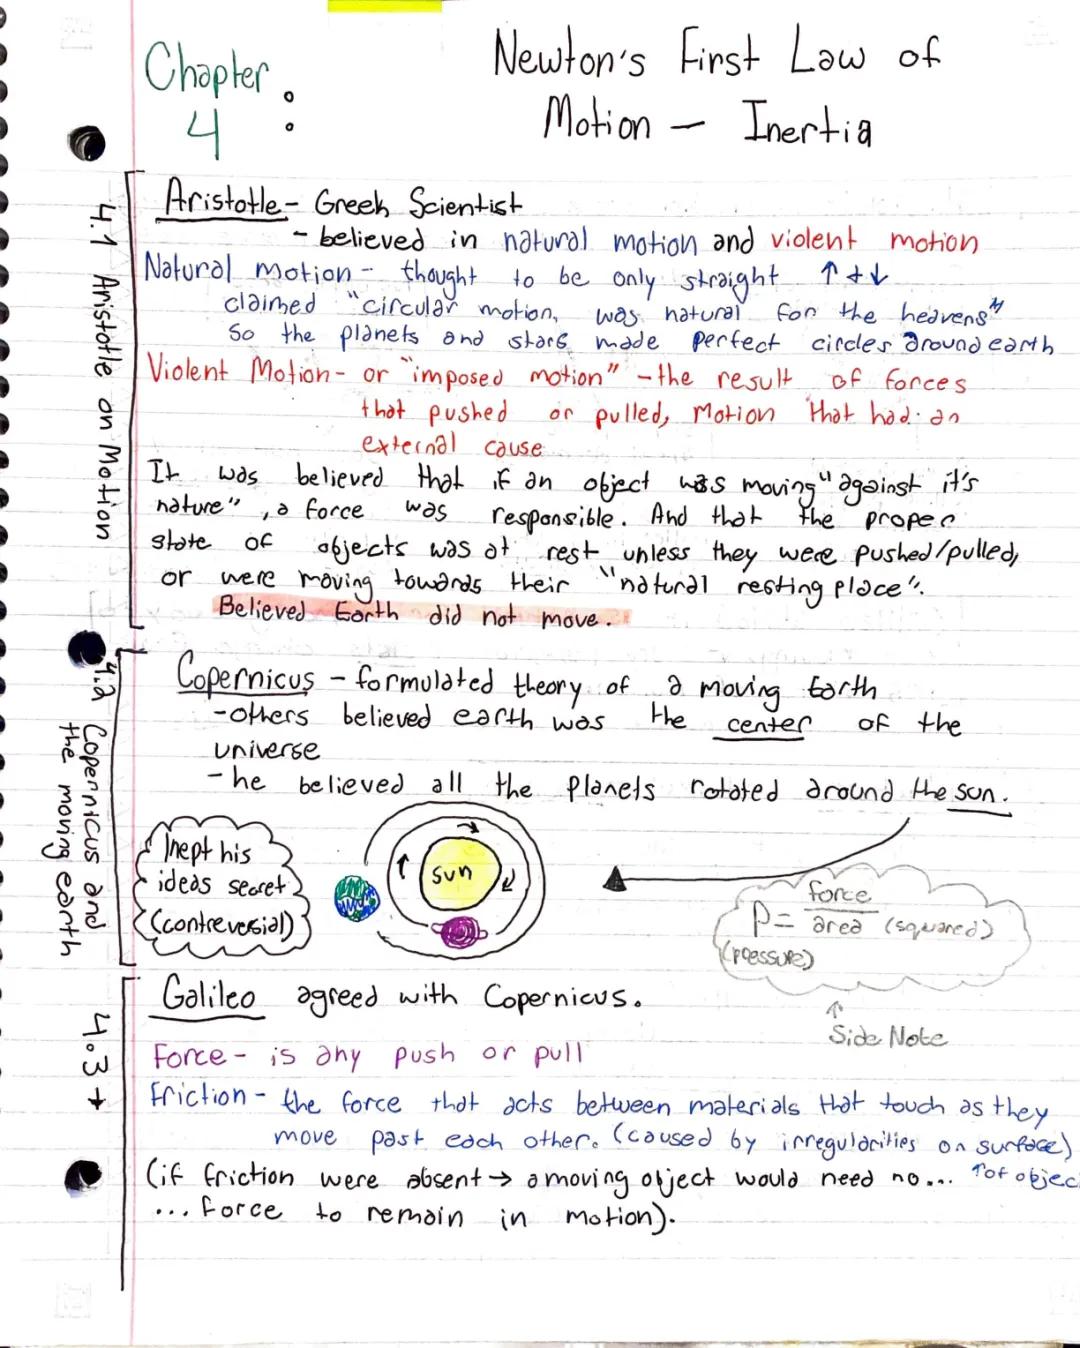 Chapter 4 :
Newton's First Law of
Motion — Inertia
4.1 Aristotle on Motion
Aristotle - Greek Scientist
- believed in natural motion and violent motion
Natural motion - thought to be only straight ↑ + ↓
claimed "circular motion, was natural for the heavens"
So the planets and stars made perfect circles around earth
Violent Motion - or "imposed motion" - the result of forces
that pushed or pulled, Motion that had an
external cause
It was believed that if an object was moving "against it's
nature", a force was responsible. And that the proper
state of objects was at rest unless they were pushed/pulled,
or were moving towards their "natural resting place".
Believed Earth did not move.
4.2 Copernicus and
the moving earth
Copernicus - formulated theory of a moving Earth
- others believed earth was the center of the
universe
- he believed all the planets rotated around the sun.
kept his
ideas secret
(contreversial)
Sun
P = force / area (squared)
(pressure)
↑
Side Note
4.3 +
Galileo agreed with Copernicus.
Force - is any push or pull
Friction - the force that acts between materials that touch as they
move past each other. (caused by irregularities on surface)
↑ of objec
(if friction were absent → a moving object would need no...
... force to remain in motion).